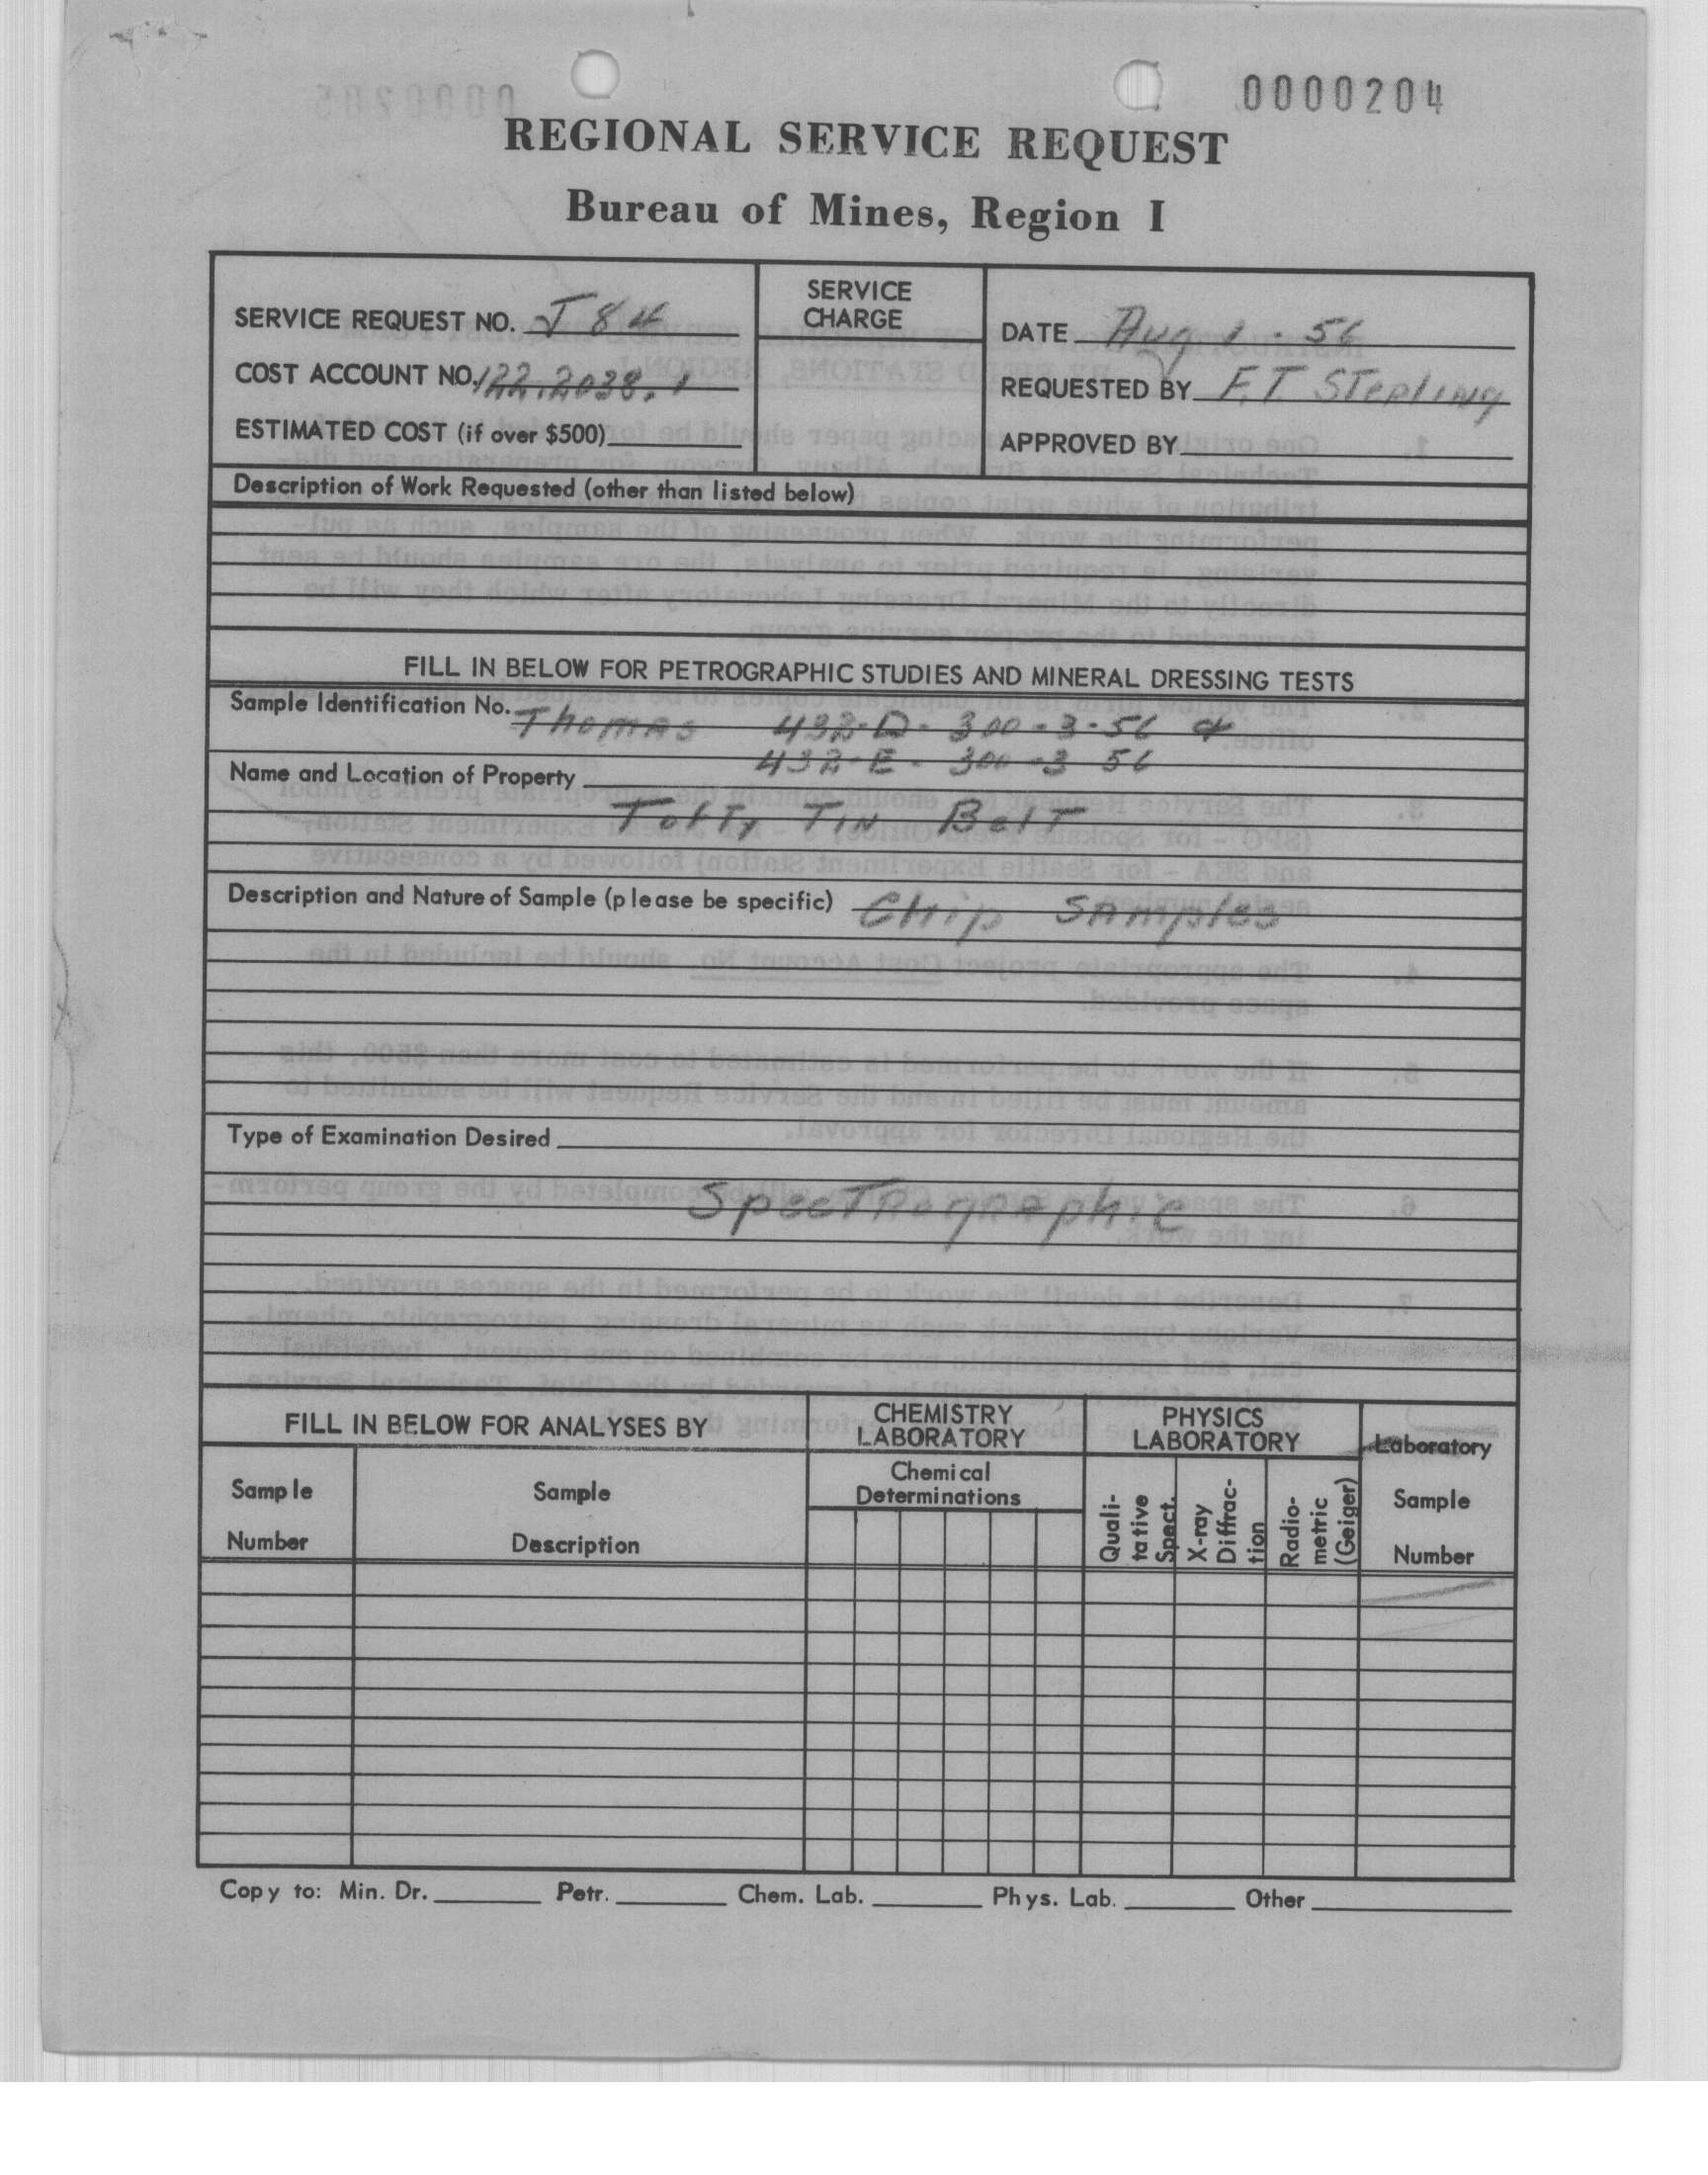 0000204
REGIONAL SERVICE REQUEST
Bureau of Mines, Region I
SERVICE REQUEST NO. J 84
COST ACCOUNT NO. 122.2038.1
ESTIMATED COST (if over $500)
SERVICE
CHARGE
DATE Aug 1 - 56
REQUESTED BY F.T. STerling
APPROVED BY
Description of Work Requested (other than listed below)
FILL IN BELOW FOR PETROGRAPHIC STUDIES AND MINERAL DRESSING TESTS
Sample Identification No. Thomas 432-D-300-3-56 &
432-E-300-3 56
Name and Location of Property
Tofty Tin Belt
Description and Nature of Sample (please be specific) Chip Samples
Type of Examination Desired
SpecTRographic
FILL IN BELOW FOR ANALYSES BY
CHEMISTRY
LABORATORY
PHYSICS
LABORATORY
Laboratory
Sample
Number
Sample
Number
Sample
Description
Chemical
Determinations
Quali-
tative
Spect.
X-ray
Diffrac-
tion
Radio-
metric
(Geiger)
Copy to: Min. Dr. Petr. Chem. Lab. Phys. Lab. Other